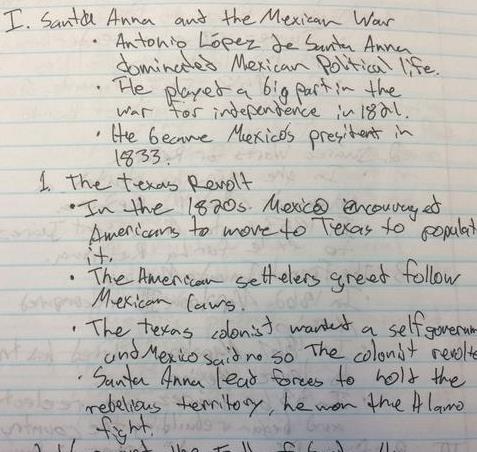 I. Santa Anna and the Mexican War
• Antonio López de Santa Anna
dominated Mexican Political life.
• He played a big part in the
war for independence in 1821.
• He became Mexico's president in
1833.
1. The Texas Revolt
• In the 1820s Mexico encouraged
Americans to move to Texas to populat
it.
• The American settelers greed follow
Mexican laws.
• The texas colonist wanted a self governm
and Mexico said no so The colonist revolte
• Santa Anna lead forces to hold the
rebelious territory, he won the Alamo
fight.